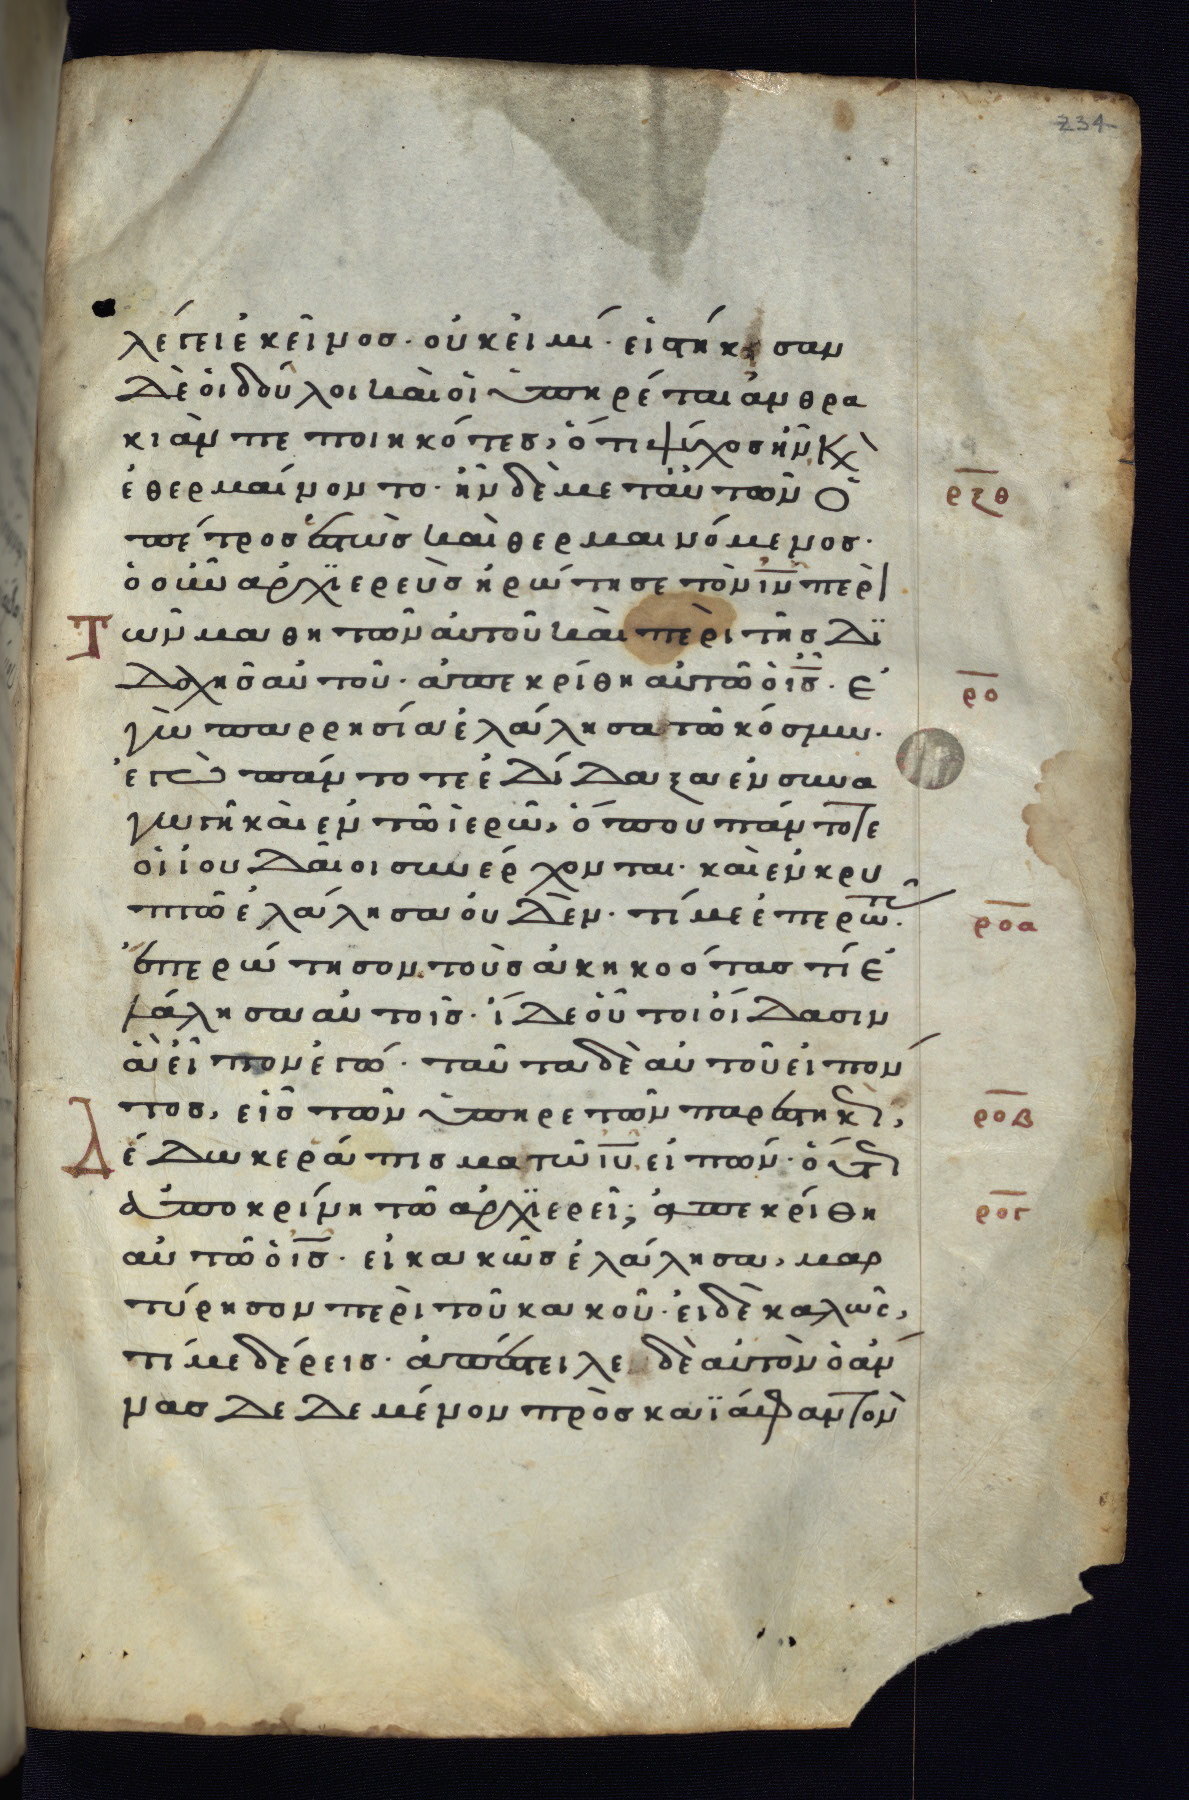 234
λέγει ἐκεῖνος· οὐκ εἰμί· εἱστήκεισαν
δὲ οἱ δοῦλοι καὶ οἱ ὑπηρέται ἀνθρα
κιὰν πεποιηκότες, ὅτι ψύχος ἦν κὶ
ἐθερμαίνοντο· ἦν δὲ μετ' αὐτῶν ὁ
ρξθ
πέτρος ἑστὼς καὶ θερμαινόμενος·
ὁ οὖν ἀρχϊερεὺς ἠρώτησε τὸν ιν περὶ
τῶν μαθητῶν αὐτοῦ καὶ περὶ τῆς δϊ
δαχῆς αὐτοῦ· ἀπεκρίθη αὐτῶ ὁ ις· ἐ
ρο
γὼ παρρησία ἐλάλησα τῶ κόσμω·
ἐγὼ πάντοτε ἐδίδαξα ἐν συνα
γωγῆ καὶ ἐν τῶ ἱερῶ, ὅπου πάντοτε
οἱ ἰουδαῖοι συνέρχονται· καὶ ἐν κρυ
πτῶ ἐλάλησα οὐδέν· τί με ἐπερωτᾶς·
ροα
ἐπερώτησον τοὺς ἀκηκοότας τί ἐ
λάλησα αὐτοῖς· ἴδε οὗτοι οἴδασιν
ἃ εἶπον ἐγώ· ταῦτα δὲ αὐτοῦ εἰπόν
τος, εἷς τῶν ὑπηρετῶν παρεστηκὼς,
ροβ
ἔδωκε ράπισμα τῶ ιυ εἰπών· οὕτως
ἀποκρίνη τῶ ἀρχϊερεῖ; ἀπεκρίθη
ρογ
αὐτῶ ὁ ις· εἰ κακῶς ἐλάλησα, μαρ
τύρησον περὶ τοῦ κακοῦ· εἰ δὲ καλῶς,
τί με δέρεις· ἀπέστειλε δὲ αὐτὸν ὁ ἄν
νας δεδεμένον πρὸς καϊάφαν τὸν